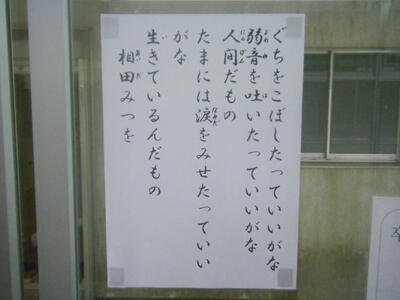 ぐちをこぼしたっていいがな
弱音を吐いたっていいがな
人間だもの
たまには涙をみせたっていい
がな
生きているんだもの
相田みつを